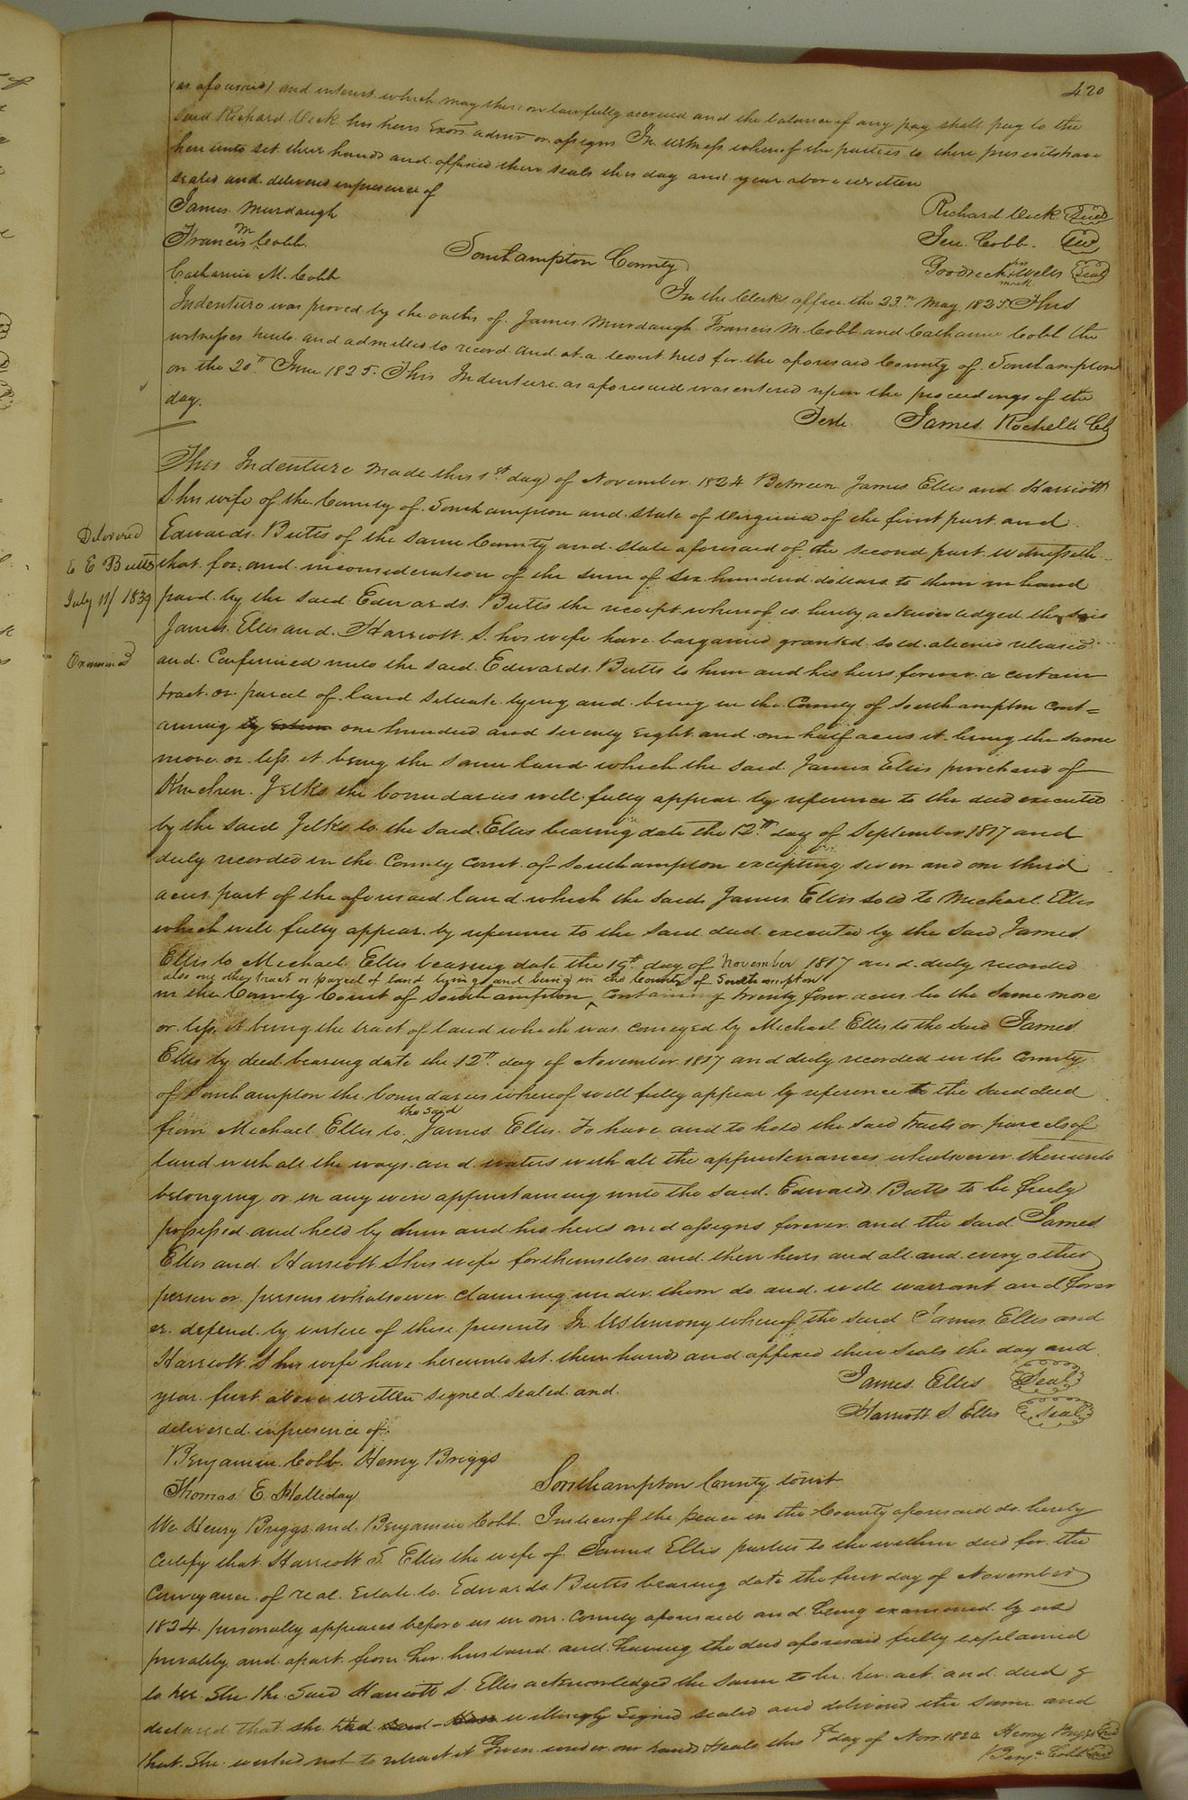 420
(as aforesaid) and interest which may thereon lawfully accrued and the balance if any pay shall pay to the
said Richard his heirs Exors admrs or assigns In witness whereof the parties to these presents have
hereunto set their hands and affixed their seals this day and year above written
sealed and delivered in presence of
James Murdaugh
Richard Seal
Francis M Cobb
Jere. Cobb. Seal
Catharine M. Cobb
Goodrich his Wells Seal
mark
Southampton County
In the Clerks office the 23rd May 1825 This
Indenture was proved by the oaths of James Murdaugh Francis M. Cobb and Catharine Cobb the
witnesses hereto and admitted to record and at a Court held for the aforesaid County of Southampton
on the 20th June 1825. This Indenture as aforesaid was entered upon the proceedings of the
day.
Teste James Rochelle Clk
This Indenture made this 1st day of November 1824 Between James Ellis and Harriott
S. his wife of the County of Southampton and state of Virginia of the first part and
Delivered
Edwards Butts of the same County and state aforesaid of the second part witnesseth
to E Butts
that for and in consideration of the sum of six hundred dollars to them in hand
July 11/ 1839
paid by the said Edwards Butts the receipt whereof is hereby acknowledged the said
James Ellis and Harriott S. his wife have bargained granted sold aliened released
Examined
and Confirmed unto the said Edwards Butts to him and his heirs forever a certain
tract or parcel of land situate lying and being in the County of Southampton cont=
aining by one hundred and seventy eight and one half acres it being the same
more or less it being the same land which the said James Ellis purchased of
Kinchen Jelks the boundaries will fully appear by reference to the deed executed
by the said Jelks to the said Ellis bearing date the 12th day of September 1817 and
duly recorded in the County Court of Southampton excepting seven and one third
acres part of the aforesaid land which the said James Ellis sold to Michael Ellis
which will fully appear by reference to the said deed executed by the said James
Ellis to Michael Ellis bearing date the 19th day of November 1817 and duly recorded
also one other tract or parcel of land lying and being in the County of Southampton
in the County Court of Southampton ^ containing twenty four acres be the same more
or less it being the tract of land which was conveyed by Michael Ellis to the said James
Ellis by deed bearing date the 12th day of November 1817 and duly recorded in the County
of Southampton the boundaries whereof will fully appear by reference to the said deed
the said
from Michael Ellis to James Ellis. To have and to hold the said tracts or parcels of
land with all the ways and waters with all the appurtenances whatsoever thereunto
belonging or in any wise appertaining unto the said Edwards Butts to be freely
possessed and held by him and his heirs and assigns forever and the said James
Ellis and Harriott S his wife for themselves and their heirs and all and every other
person or persons whatsoever claiming under them do and will warrant and forev
er defend by virtue of these presents In testimony whereof the said James Ellis and
Harriott S his wife have hereunto set their hands and affixed their seals the day and
year first above written signed sealed and
James Ellis Seal
delivered in presence of
Harriott S. Ellis Seal
Benjamin Cobb. Henry Briggs
Thomas E. Holliday
Southampton County Court
We Henry Briggs and Benjamin Cobb Justices of the peace in the County aforesaid do hereby
certify that Harriott S. Ellis the wife of James Ellis parties to the within deed for the
conveyance of real Estate to Edwards Butts bearing date the first day of November
1824. personally appeared before us in our County aforesaid and being examined by us
privately and apart from her husband and having the deed aforesaid fully explained
to her She the said Harriott S. Ellis acknowledged the same to be her act and deed &
declared that she had willingly signed sealed and delivered the same and
that she wished not to retract it Given under our hands & seals this 1st day of Novr 1824 Henry Briggs Seal
Benj. Cobb Seal